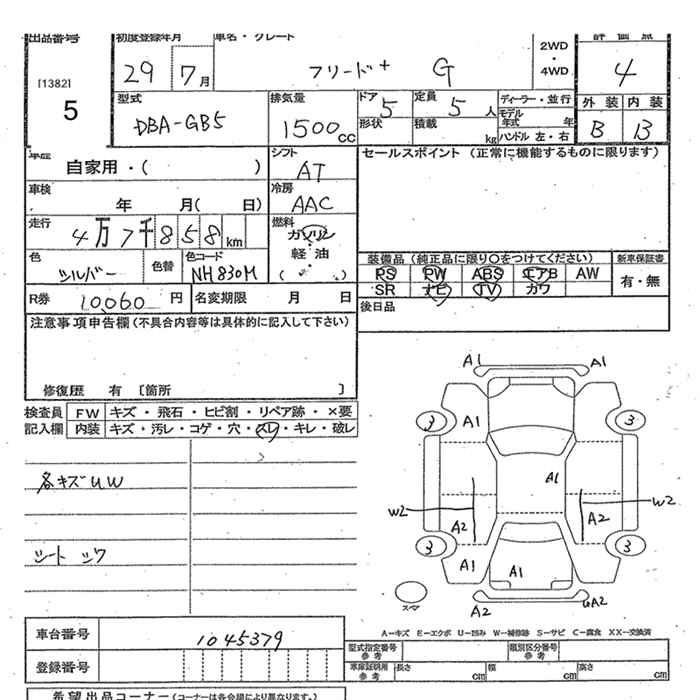 出品番号 初度登録年月 車名・グレード 2WD・4WD 評価点
[1382]
5
29 7月
フリード+ G
4
型式 DBA-GB5
排気量 1500cc
ドア 5
定員 5人
形状
積載 kg
ディーラー・並行
モデル年式 年
ハンドル 左・右
外装 内装
B B
車歴 自家用・( )
シフト AT
セールスポイント (正常に機能するものに限ります)
車検 年 月( 日)
冷房 AAC
走行 4万7千858km
燃料 ガソリン
軽・油
( )
色 シルバー
色替
色コード NH830M
装備品 (純正品に限り○をつけてください) 新車保証書
PS PW ABS エアB AW 有・無
SR ナビ TV カワ
R券 10,060円 名変期限 月 日
後日品
注意事項申告欄(不具合内容等は具体的に記入して下さい)
修復歴 有 [箇所 ]
検査員 FW キズ・飛石・ヒビ割・リペア跡・×要
記入欄 内装 キズ・汚レ・コゲ・穴・スレ・キレ・破レ
各キズUW
シート シワ
A1 A1
A1
3 3
A1
W2 W2
A2 A2
3 3
A1 A1
スペア
A2 UA2
A-キズ E-エクボ U-凹み W-補修跡 S-サビ C-腐食 XX-交換済
車台番号 1045379
型式指定番号 参考
類別区分番号 参考
登録番号
車庫証明用 参考 長さ cm 幅 cm 高さ cm
希望出品コーナー(コーナーは各会場により異なります。)